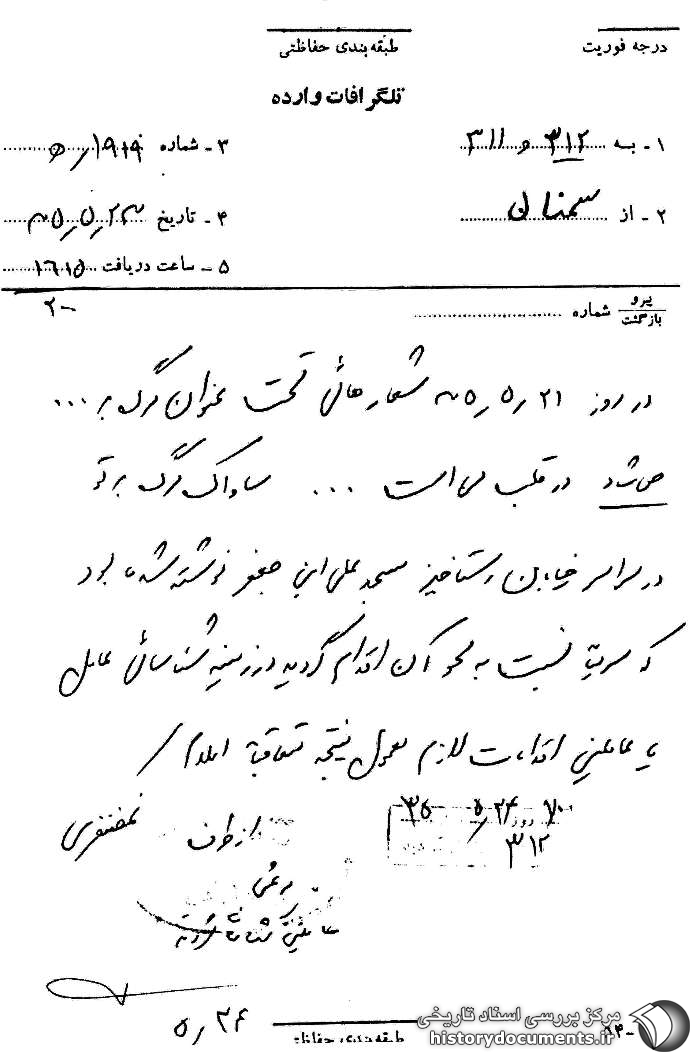 درجه فوریت
طبقه‌بندی حفاظتی
تلگرافات وارده
۱ - به ۳۱۲ و ۳۱۱
۳ - شماره
۲ - از سمنان
۴ - تاریخ ۲۳ر۵ر۳۵
۵ - ساعت دریافت ۱۶۱۵
پیرو
بازگشت شماره
۲۰
در روز ۲۱ر۵ر۳۵ شعارهائی تحت عنوان مرگ بر ...
در قلب ما است ... ساواک مرگ بر تو
در سراسر خیابان رستاخیز مسجد علی ابن جعفر نوشته شده بود
که سریعاً نسبت به محو آن اقدام گردید در زمینه شناسائی عامل
یا عاملین اقدامات لازم معمول نتیجه متعاقباً اعلام
غضنفری
از طرف
۳۵ ۵ر۲۴
روز
۳۱۲
۵ر۲۴
طبقه‌بندی حفاظتی
مرکز بررسی اسناد تاریخی
historydocuments.ir